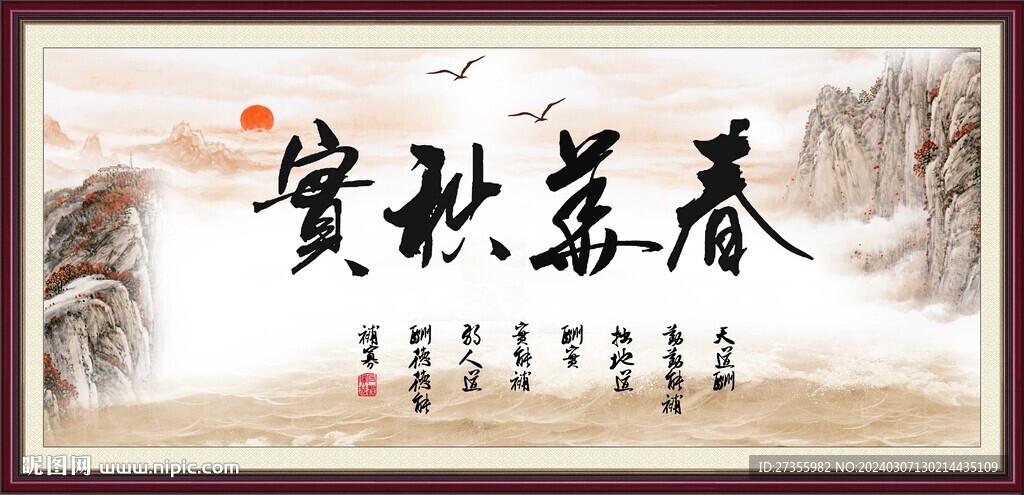 春華秋實
天道酬
勤勤能補
拙地道
酬實
實能補
弱人道
酬德德能
補寡
昵图网 www.nipic.com
ID:27355982 NO:20240307130214435109